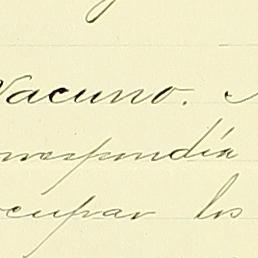 Vacuno.
rrespondía
ocupar los